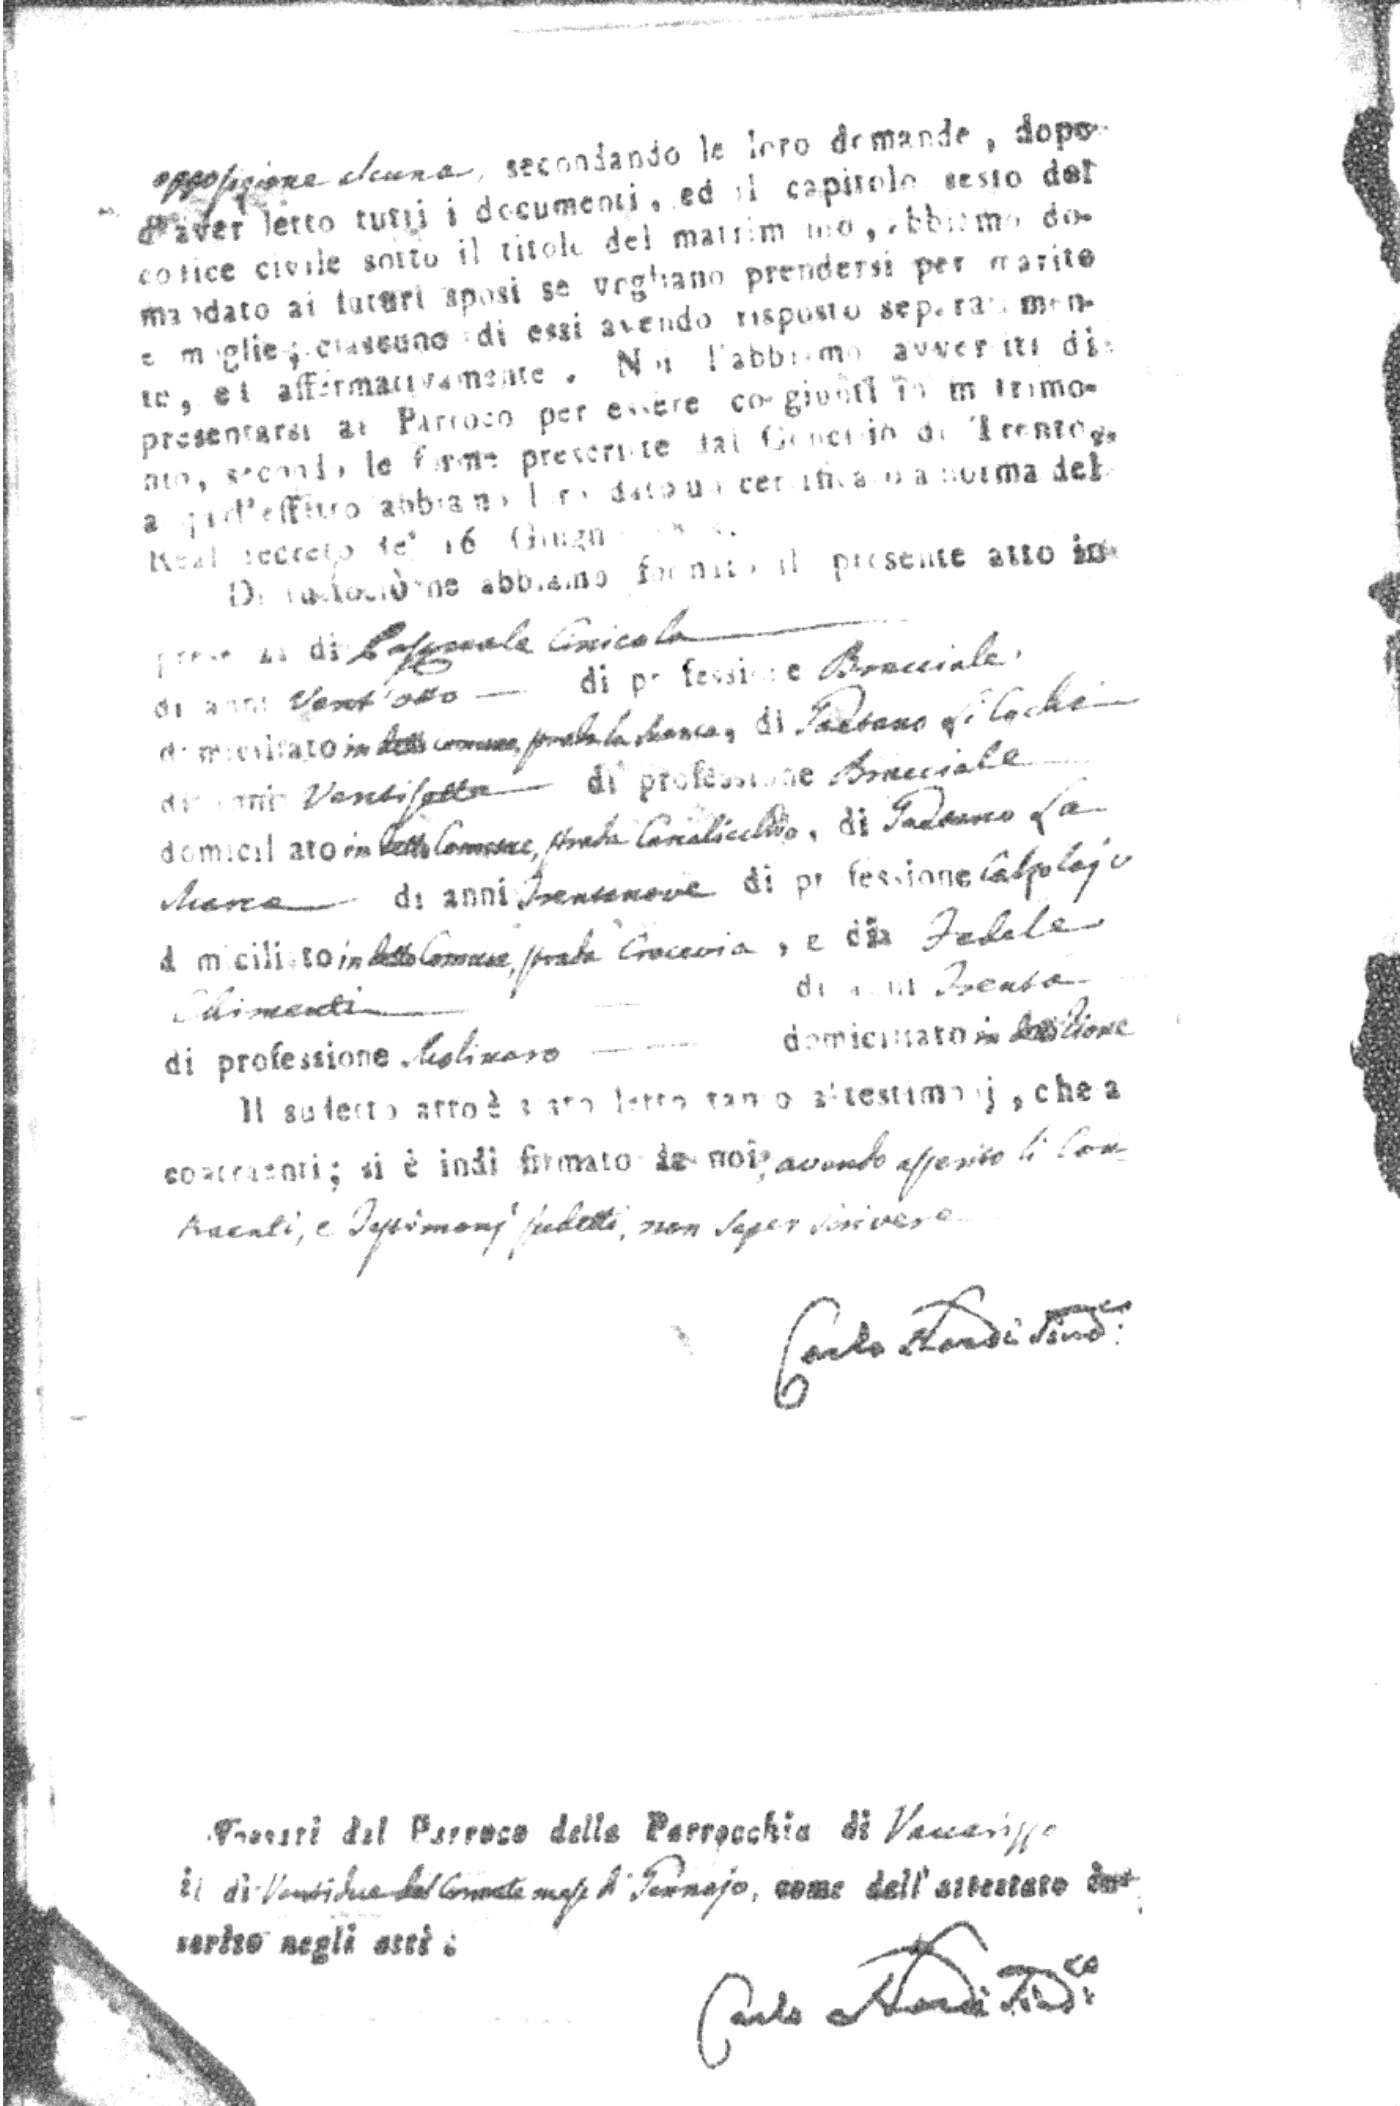 opposizione alcuna, secondando le loro domande, dopo
d'aver letto tutti i documenti, ed il capitolo sesto del
codice civile sotto il titolo del matrimonio, abbiamo do-
mandato ai futuri sposi se vogliano prendersi per marito
e moglie; ciascuno di essi avendo risposto separatamen-
te, ed affermativamente. Noi l'abbiamo avvertiti di
presentarsi al Parroco per essere congiunti in matrimo-
nio, secondo le forme prescritte dal Concilio di Trento,
a qual'effetto abbiamo loro dato un certificato a norma del
Real decreto de' 16 Giugno
Di tuttociò ne abbiamo formato il presente atto in
presenza di Pasquale Cinicola
di anni Vent'otto di professione Bracciale
domiciliato in detto comune, strada la Manca, di Gaetano
di anni Ventisette di professione Bracciale
domiciliato in detto Comune, strada Canalicchio, di Gaetano La
Marca di anni Trentanove di professione Calzolajo
domiciliato in detto Comune, strada Crocevia, e di Fedele
Chimenti di anni Trenta
di professione Molinaro domiciliato in
Il sudetto atto è stato letto tanto a' testimonj, che a
contraenti; si è indi firmato da noi, avendo asserito li Con-
traenti, e Testimonj sudetti, non saper scrivere
Carlo
del Parroco della Parrocchia di Vaccarizzo
il dì Ventidue del Corrente mese di Gennajo, come dell'attestato in-
serito negli atti
Carlo